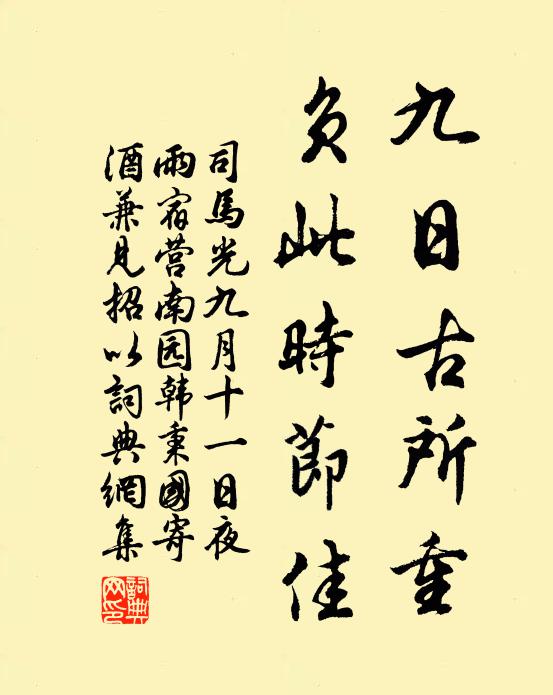 九日古所重
负此時節佳
司馬光九月十一日夜
雨宿营南园韩秉國寄
酒兼見招以詞典網集
詞典
网印